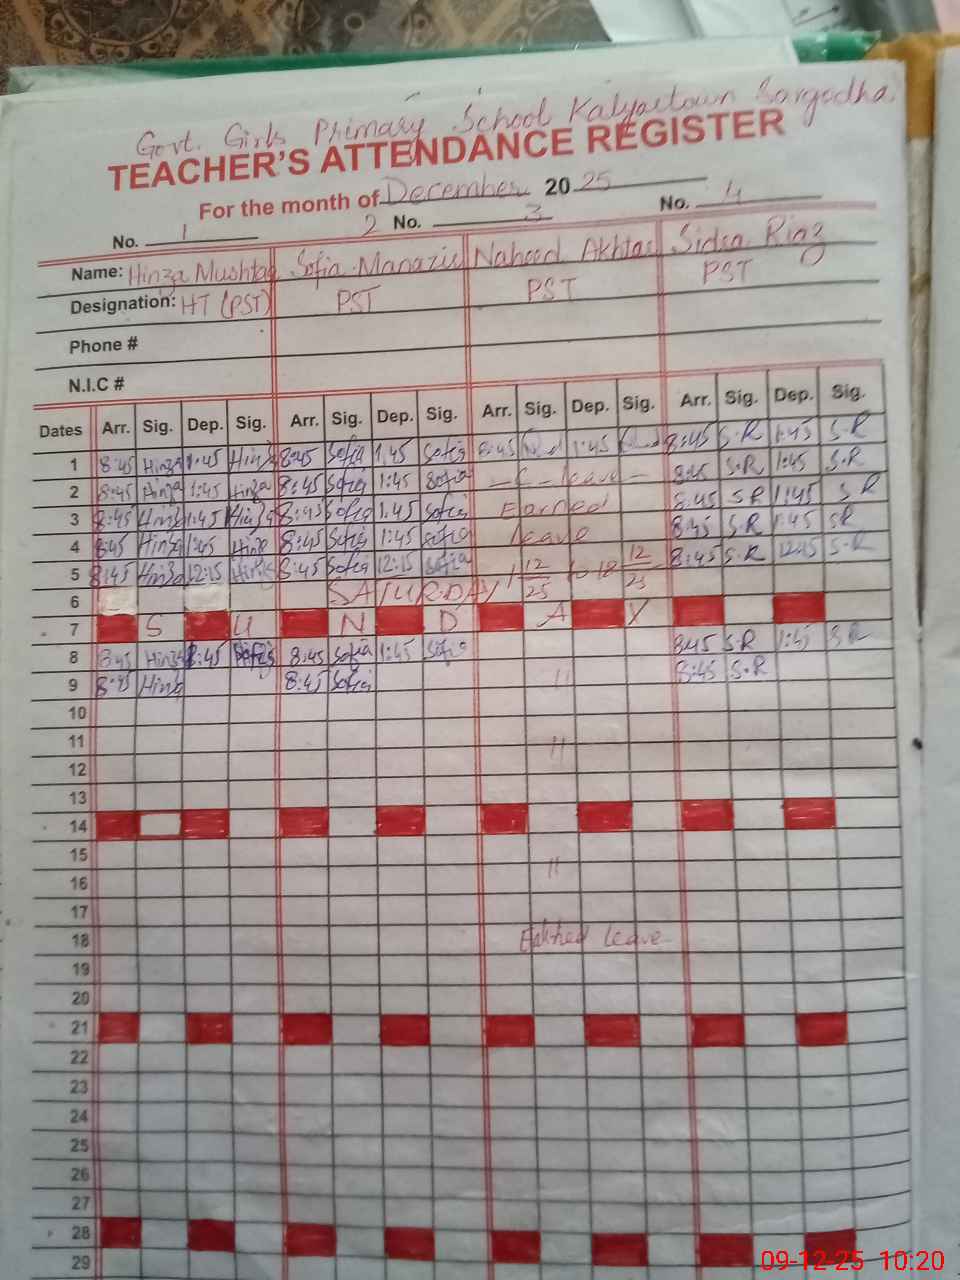 Govt. Girls Primary School Kalyartown Sargodha
TEACHER'S ATTENDANCE REGISTER
For the month of December 2025
No. 1 2 No. 3 No. 4
Name: Hinza Mushtaq Sofia Manazir Naheed Akhtar Sidra Riaz
Designation: HT (PST) PST PST PST
Phone #
N.I.C #
Dates Arr. Sig. Dep. Sig. Arr. Sig. Dep. Sig. Arr. Sig. Dep. Sig. Arr. Sig. Dep. Sig.
1 8:45 Hinza 1:45 Hinza 8:45 Sofia 1:45 Sofia 8:45 1:45 8:45 S.R 1:45 S.R
2 8:45 Hinza 1:45 Hinza 8:45 Sofia 1:45 Sofia leave 8:45 S.R 1:45 S.R
3 8:45 Hinza 1:45 Hinza 8:45 Sofia 1:45 Sofia Earned 8:45 S R 1:45 S R
4 8:45 Hinza 1:45 Hinza 8:45 Sofia 1:45 Sofia leave 8:45 S.R 1:45 S.R
5 8:45 Hinza 12:15 Hinza 8:45 Sofia 12:15 Sofia 12/25 to 18 12/25 8:45 S.R 12:15 S.R
6 SATURDAY
7 S U N D A Y
8 8:45 Hinza 1:45 8:45 Sofia 1:45 Sofia 8:45 S.R 1:45 S.R
9 8:45 Hinza 8:45 Sofia 11 8:45 S.R
10
11 11
12
13
14
15
16 11
17
18 leave
19
20
21
22
23
24
25
26
27
28
29
09-12-25 10:20